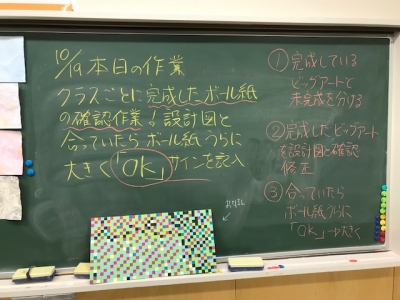 10/9 本日の作業
クラスごとに完成したボール紙
の確認作業！設計図と
合っていたらボール紙うらに
大きく「OK」サインを記入
① 完成している
ビッグアートと
未完成を分ける
② 完成したビッグアート
を設計図と確認
修正
③ 合っていたら
ボール紙うらに
「OK」→大きく